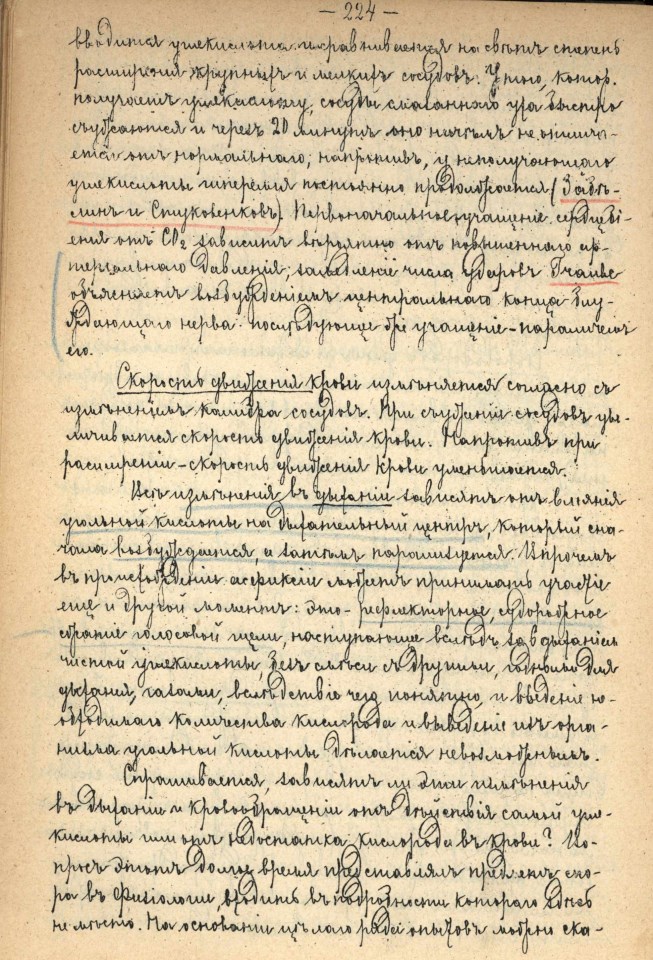 — 224 —
вводится углекислота и сравнивается на свѣтъ степень
расширенія крупныхъ и мелкихъ сосудовъ. У того, котор.
получаетъ углекислоту, сосуды сказаннаго уха быстро
съуживаются и черезъ 20 минутъ оно ничѣмъ не отлича-
ется отъ нормальнаго; напротивъ, у неполучающаго
углекислоты гиперемія постоянно продолжается (Забѣ-
линъ и Стуковенковъ). Первоначальное учащеніе сердцебі-
енія отъ CO₂ зависитъ вѣроятно отъ повышеннаго ар-
теріальнаго давленія; замедленіе числа ударовъ Траубе
объясняетъ возбужденіемъ центральнаго конца блу-
ждающаго нерва последующее же учащеніе – параличемъ
его.
Скорость движенія крови измѣняется согласно съ
измѣненіемъ калибра сосудовъ. При съуженіи сосудовъ уве-
личивается скорость движенія крови. Напротивъ при
расширеніи – скорость движенія крови уменьшается.
Всѣ измѣненія въ дыханіи зависятъ отъ вліянія
угольной кислоты на дыхательный центръ, который сна-
чала возбуждается, а затѣмъ парализуется. Впрочемъ
въ происхожденіи асфиксіи можетъ принимать участіе
еще и другой моментъ: это – рефлекторное, судорожное
сжатіе голосовой щели, наступающее вслѣдъ за вдыханіемъ
чистой углекислоты, безъ смѣси съ другими, годными для
дыханія, газами, вслѣдствіе чего, понятно, и введеніе не-
обходимаго количества кислорода и выведеніе изъ орга-
низма угольной кислоты дѣлается невозможнымъ.
Спрашивается, зависятъ ли эти измѣненія
въ дыханіи и кровообращеніи отъ дѣйствія самой угле-
кислоты или отъ недостатка кислорода въ крови? Во-
просъ этотъ долгое время представлялъ предметъ спо-
ра въ физіологіи, входить въ подробности котораго здѣсь
не мѣсто. На основаніи цѣлаго ряда опытовъ можно ска-